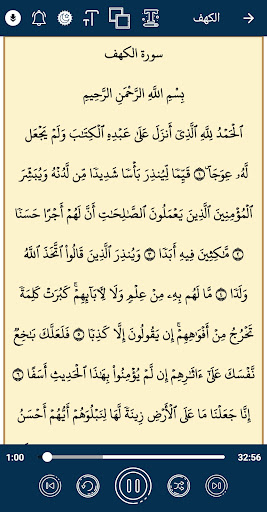 الكهف
سورة الكهف
بِسْمِ اللَّهِ الرَّحْمَٰنِ الرَّحِيمِ
ٱلْحَمْدُ لِلَّهِ ٱلَّذِىٓ أَنزَلَ عَلَىٰ عَبْدِهِ ٱلْكِتَـٰبَ وَلَمْ يَجْعَل
لَّهُۥ عِوَجَاۜ ۝١ قَيِّمًا لِّيُنذِرَ بَأْسًا شَدِيدًا مِّن لَّدُنْهُ وَيُبَشِّرَ
ٱلْمُؤْمِنِينَ ٱلَّذِينَ يَعْمَلُونَ ٱلصَّـٰلِحَـٰتِ أَنَّ لَهُمْ أَجْرًا حَسَنًا
۝٢ مَّـٰكِثِينَ فِيهِ أَبَدًا ۝٣ وَيُنذِرَ ٱلَّذِينَ قَالُوا۟ ٱتَّخَذَ ٱللَّهُ
وَلَدًا ۝٤ مَّا لَهُم بِهِۦ مِنْ عِلْمٍ وَلَا لِـَٔابَآئِهِمْ ۚ كَبُرَتْ كَلِمَةً
تَخْرُجُ مِنْ أَفْوَٰهِهِمْ ۚ إِن يَقُولُونَ إِلَّا كَذِبًا ۝٥ فَلَعَلَّكَ بَـٰخِعٌ
نَّفْسَكَ عَلَىٰٓ ءَاثَـٰرِهِمْ إِن لَّمْ يُؤْمِنُوا۟ بِهَـٰذَا ٱلْحَدِيثِ أَسَفًا ۝٦
إِنَّا جَعَلْنَا مَا عَلَى ٱلْأَرْضِ زِينَةً لَّهَا لِنَبْلُوَهُمْ أَيُّهُمْ أَحْسَنُ
1:00 32:56